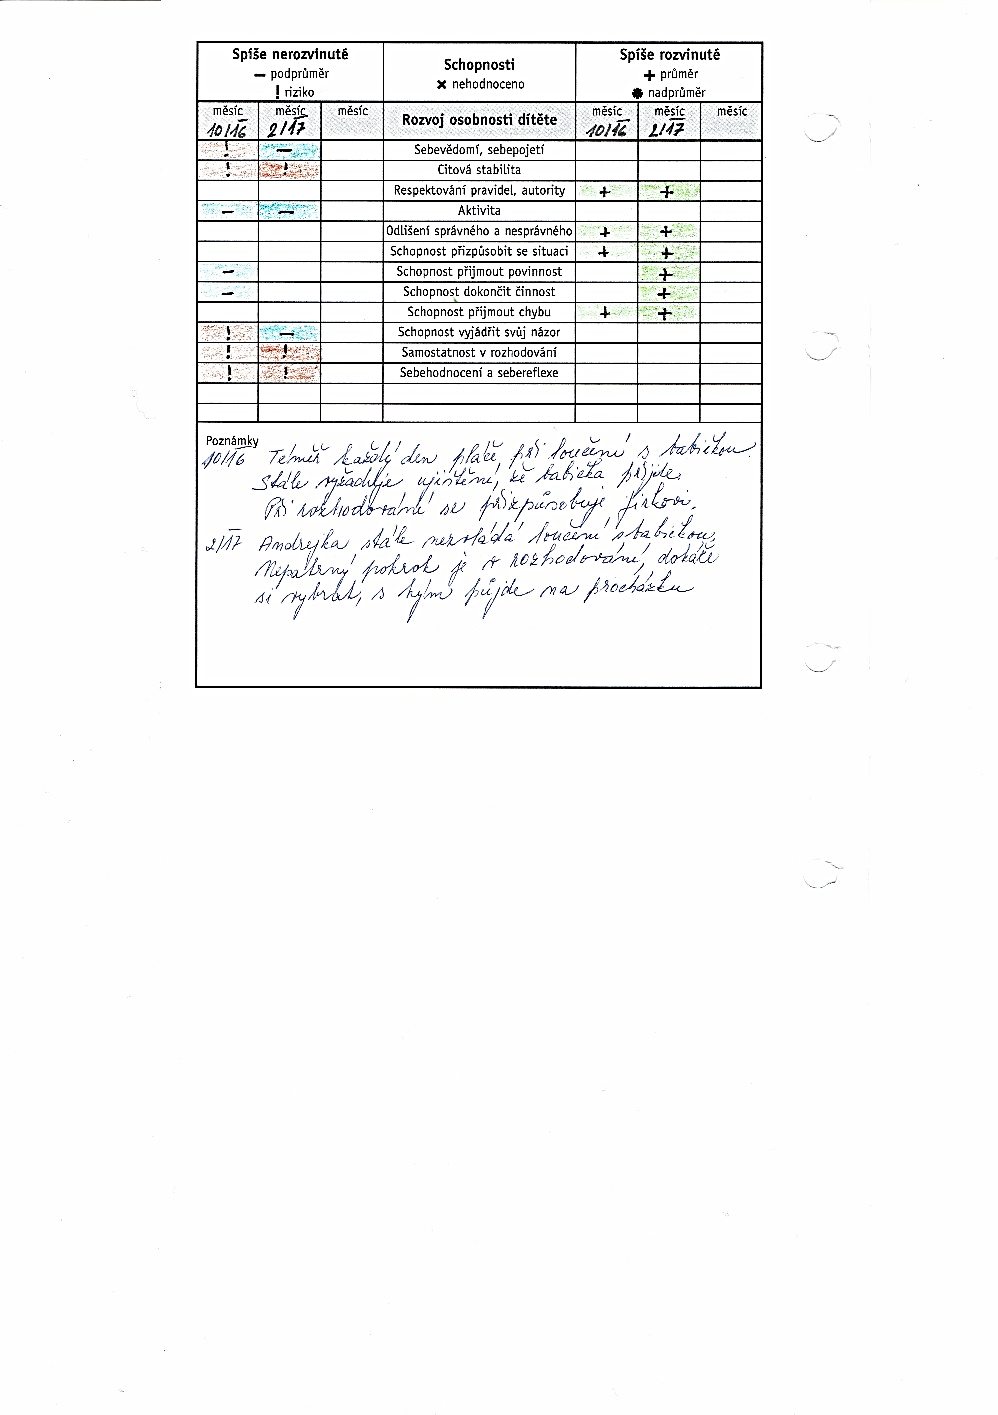 Spíše nerozvinuté
– podprůměr
! riziko
Schopnosti
✖ nehodnoceno
Spíše rozvinuté
+ průměr
● nadprůměr
měsíc 10/16 měsíc 2/17 měsíc Rozvoj osobnosti dítěte měsíc 10/16 měsíc 2/17 měsíc
! – Sebevědomí, sebepojetí
! ! Citová stabilita
Respektování pravidel, autority + +
– – Aktivita
Odlišení správného a nesprávného + +
Schopnost přizpůsobit se situaci + +
– Schopnost přijmout povinnost +
– Schopnost dokončit činnost +
Schopnost přijmout chybu + +
! – Schopnost vyjádřit svůj názor
! ! Samostatnost v rozhodování
! ! Sebehodnocení a sebereflexe
Poznámky
10/16 Téměř každý den pláče při loučení s babičkou.
Stále vyžaduje ujištění, že babička přijde.
Při rozhodování se přizpůsobuje Jirkovi.
2/17 Andrejka stále nezvládá loučení s babičkou,
Nepatrný pokrok je v rozhodování, dokáže
si vybrat, s kým půjde na procházku